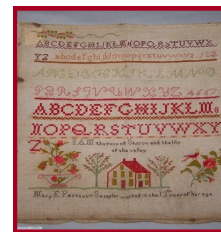 ABCDEFGHIJKLMNOPQRSTUVWX
YZ abcdefghijklmnopqrstuvwxyz
ABCDEFGHIJKLMNO
PQRSTUVWXYZ
ABCDEFGHIJKLM
NOPQRSTUVWXY
Z I AM the rose of Sharon and the lily
of the valley
Mary E. Sampler worked in the year of her age